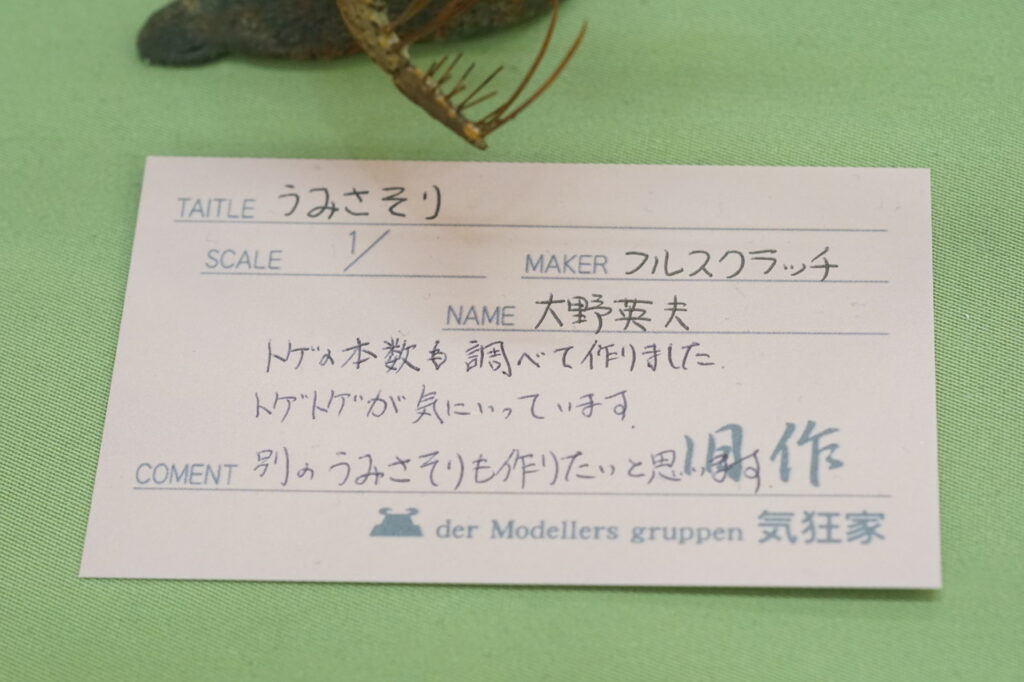 TAITLE うみさそり
SCALE 1/
MAKER フルスクラッチ
NAME 大野英夫
トゲの本数も調べて作りました.
トゲトゲが気にいっています.
COMENT 別のうみさそりも作りたいと思います.
旧作
der Modellers gruppen 気狂家